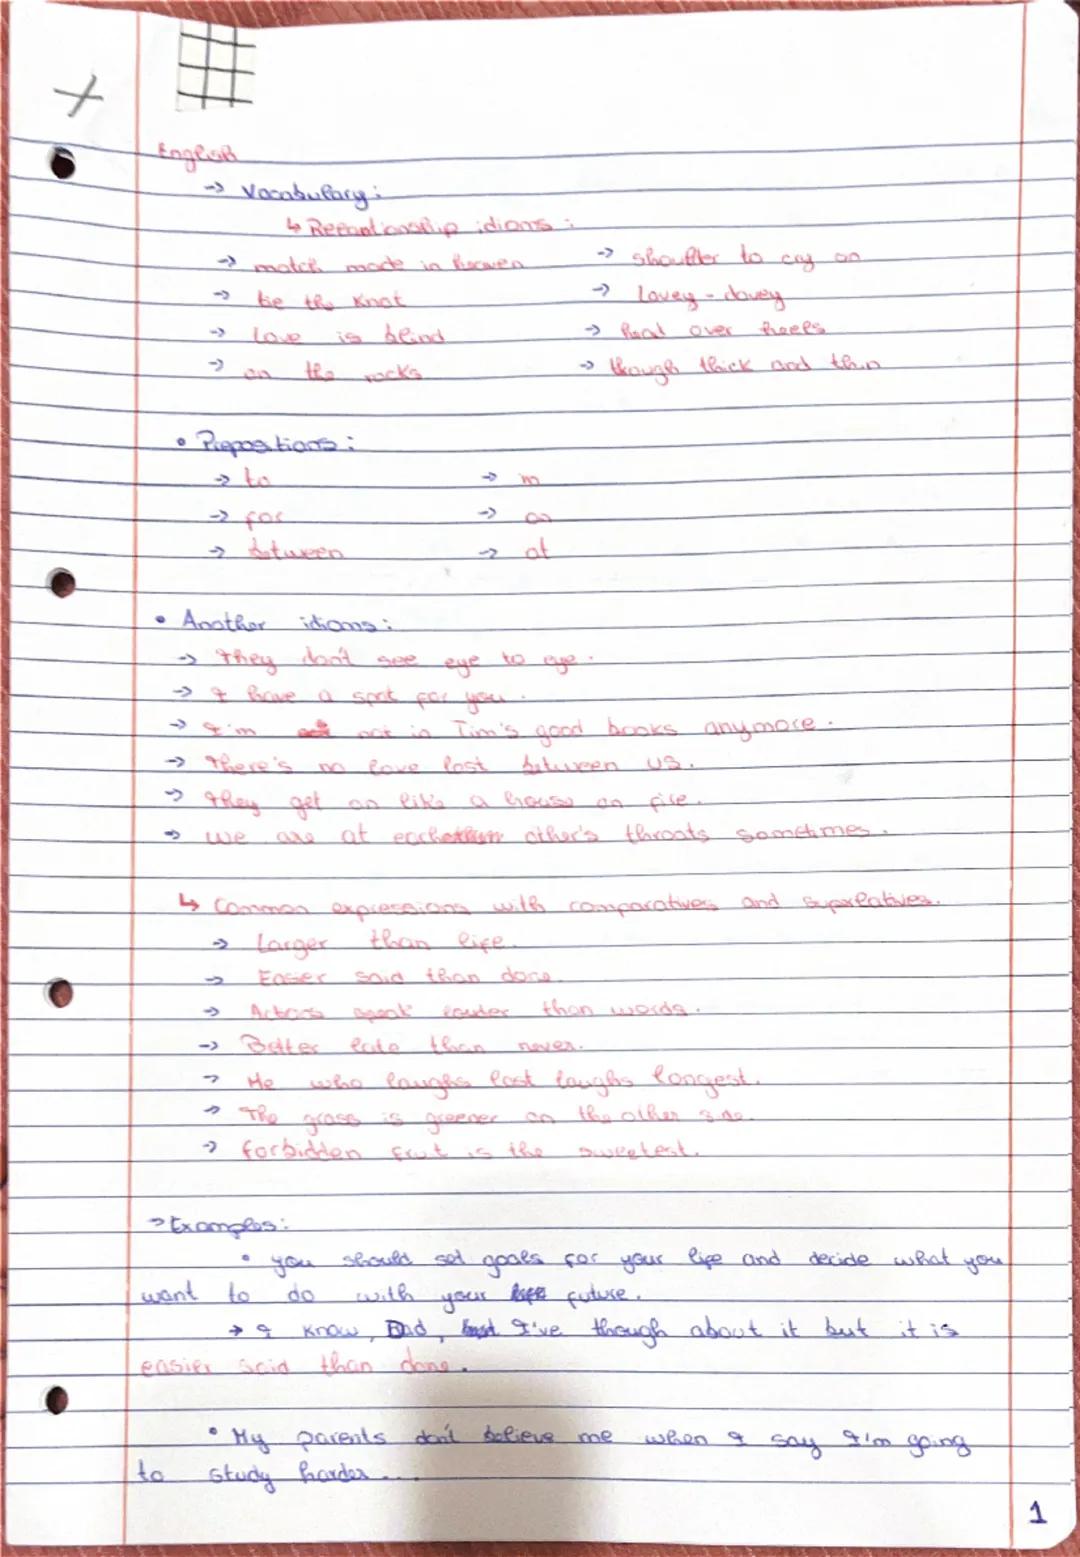 English
→ Vocabulary :
↳ Reelantionship idioms :
→ match made in heaven → shoulder to cry on
→ tie the knot → Lovey - dovey
→ Love is blind → head over heels
→ on the rocks → though thick and thin
• Prepositions :
→ to → in
→ for → on
→ between → at
• Another idioms :
→ They don't see eye to eye .
→ I have a spot for you .
→ I'm not in Tim's good books anymore .
→ There's no love lost between us .
→ They get on like a house on fire .
→ we are at each other's throats sometimes .
↳ Common expressions with comparatives and superlatives .
→ Larger than life .
→ Easier said than done .
→ Actions speak louder than words .
→ Better late than never .
→ He who laughs last laughs longest .
→ The grass is greener on the other side .
→ forbidden fruit is the sweetest .
→ Examples :
• you should set goals for your life and decide what you
want to do with your future .
→ I know , Dad , I've though about it but it is
easier said than done .
• My parents don't believe me when I say I'm going
to study harder ...
1